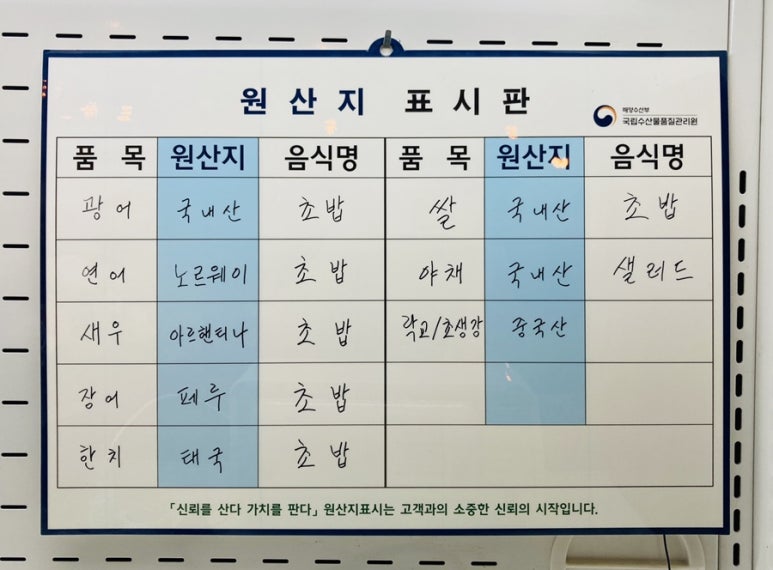 원산지 표시판
해양수산부
국립수산물품질관리원
품 목 원산지 음식명 품 목 원산지 음식명
광어 국내산 초밥 쌀 국내산 초밥
연어 노르웨이 초밥 야채 국내산 샐러드
새우 아르헨티나 초밥 락교/초생강 중국산
장어 페루 초밥
한치 태국 초밥
「신뢰를 산다 가치를 판다」 원산지표시는 고객과의 소중한 신뢰의 시작입니다.